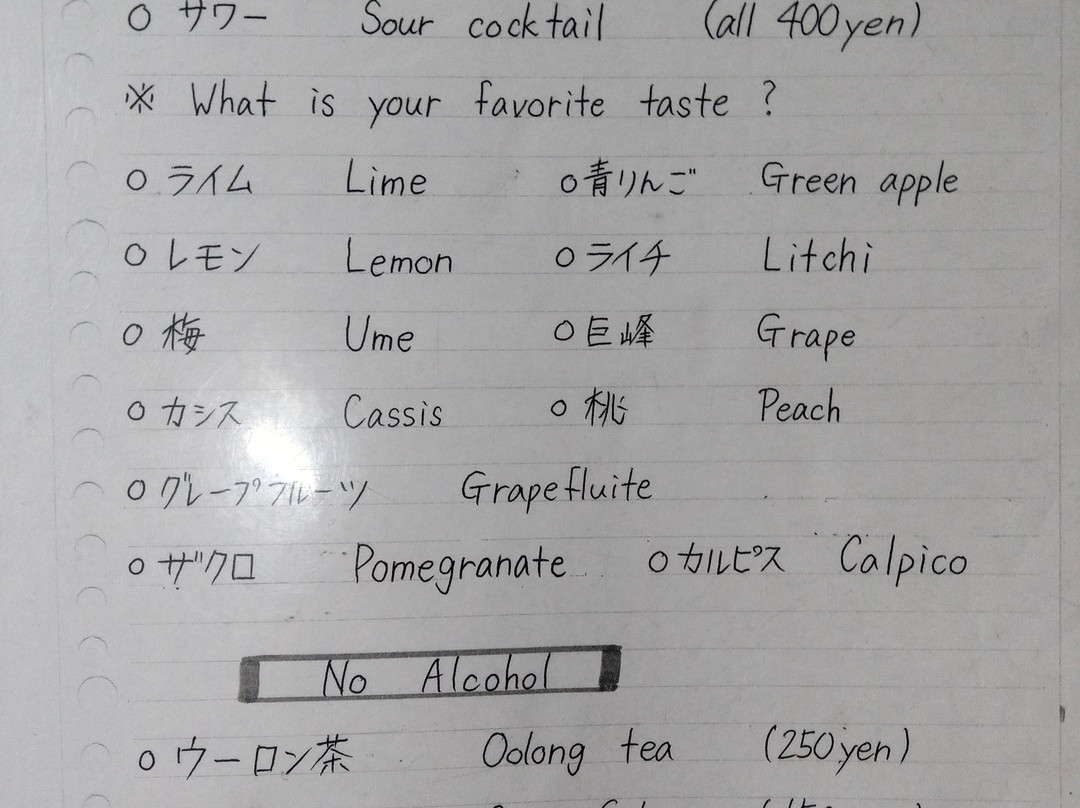 ○ サワー Sour cocktail (all 400yen)
※ What is your favorite taste ?
○ ライム Lime ○ 青りんご Green apple
○ レモン Lemon ○ ライチ Litchi
○ 梅 Ume ○ 巨峰 Grape
○ カシス Cassis ○ 桃 Peach
○ グレープフルーツ Grapefluite
○ ザクロ Pomegranate ○ カルピス Calpico
No Alcohol
○ ウーロン茶 Oolong tea (250yen)